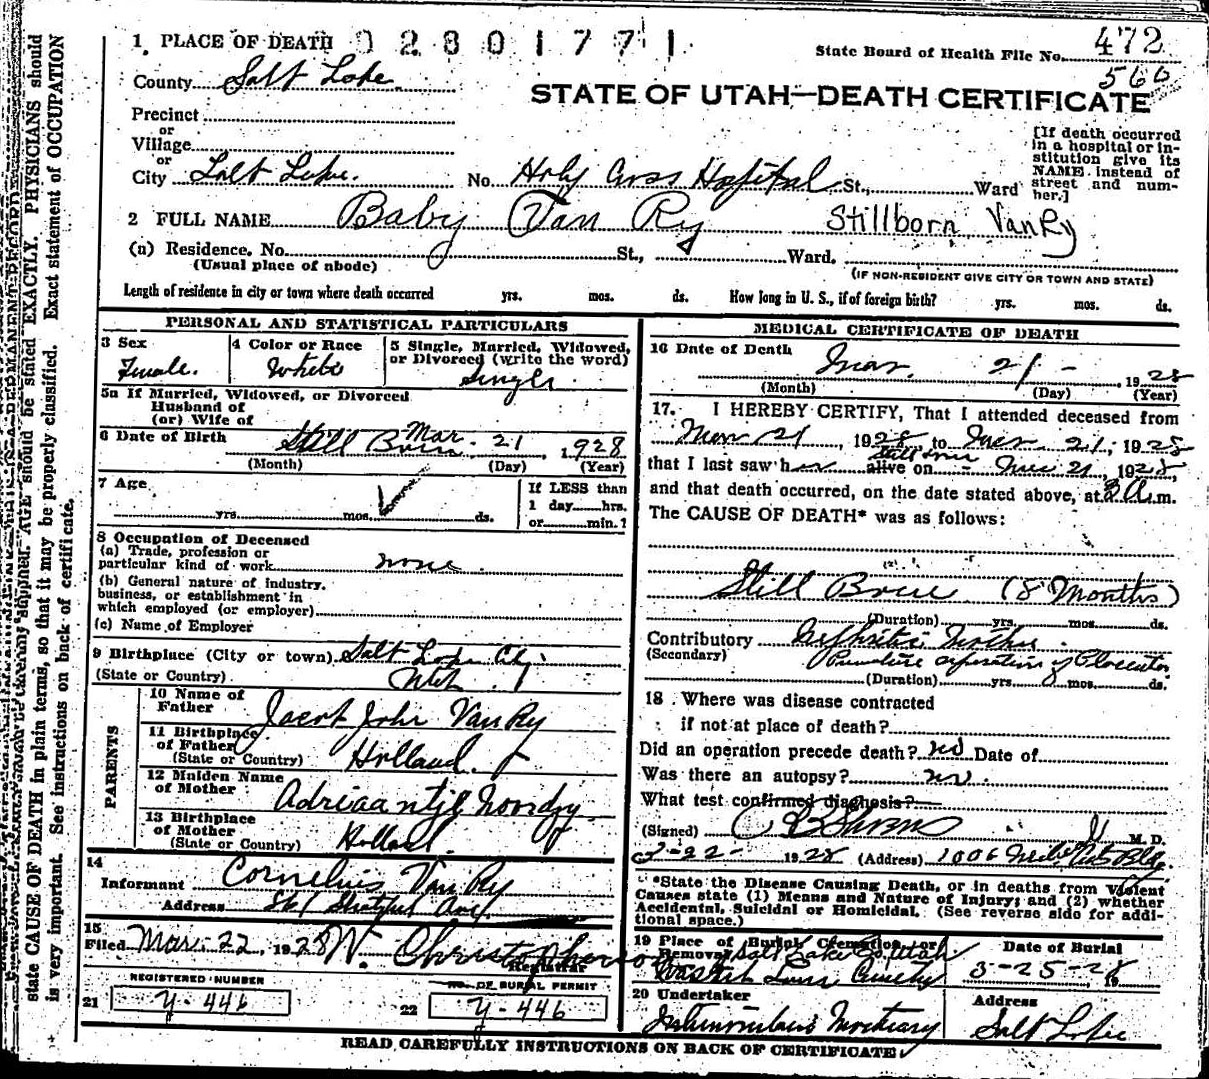 1. PLACE OF DEATH 02801771
State Board of Health File No. 472
560
County Salt Lake
STATE OF UTAH—DEATH CERTIFICATE
Precinct
or
Village
or
City Salt Lake. No. Holy Cross Hospital St., Ward
[If death occurred in a hospital or in-
stitution give its
NAME instead of
street and num-
ber.]
2 FULL NAME Baby Van Ry Stillborn VanRy
(a) Residence. No. St., Ward.
(Usual place of abode) (IF NON-RESIDENT GIVE CITY OR TOWN AND STATE)
Length of residence in city or town where death occurred yrs. mos. ds. How long in U. S., if of foreign birth? yrs. mos. ds.
PERSONAL AND STATISTICAL PARTICULARS
3 Sex
Female.
4 Color or Race
White
5 Single, Married, Widowed,
or Divorced (write the word)
Single
5a If Married, Widowed, or Divorced
Husband of
(or) Wife of
6 Date of Birth Still Born Mar. 21, 1928
(Month) (Day) (Year)
7 Age
yrs. mos. ds.
If LESS than
1 day hrs.
or min.?
8 Occupation of Deceased
(a) Trade, profession or
particular kind of work none
(b) General nature of industry,
business, or establishment in
which employed (or employer)
(c) Name of Employer
9 Birthplace (City or town) Salt Lake City
(State or Country) Utah
PARENTS
10 Name of
Father Jacob John Van Ry
11 Birthplace
of Father
(State or Country) Holland
12 Maiden Name
of Mother Adriaantje Noordzy
13 Birthplace
of Mother
(State or Country) Holland
14
Informant Cornelius Van Ry
Address
15
Filed Mar. 22, 1928 W. Christopherson
Registrar
REGISTERED NUMBER
21 Y-446
No. OF BURIAL PERMIT
22 Y-446
MEDICAL CERTIFICATE OF DEATH
16 Date of Death
Mar. 21 - , 1928
(Month) (Day) (Year)
17. I HEREBY CERTIFY, That I attended deceased from
Mar 21, 1928, to Mar. 21, 1928
Still born
that I last saw her alive on - Mar 21, 1928,
and that death occurred, on the date stated above, at 3 A. m.
The CAUSE OF DEATH* was as follows:
Still Born (8 Months)
(Duration) yrs. mos. ds.
Contributory Nephritis Mother.
(Secondary) Premature separation of Placenta
(Duration) yrs. mos. ds.
18. Where was disease contracted
if not at place of death?
Did an operation precede death? no Date of
Was there an autopsy? no.
What test confirmed diagnosis?
(Signed) M. D.
3-22- 1928 (Address) 1006 Bldg
*State the Disease Causing Death, or in deaths from Violent
Causes state (1) Means and Nature of Injury; and (2) whether
Accidental, Suicidal or Homicidal. (See reverse side for addi-
tional space.)
19 Place of Burial Cremation or
Removal Salt Lake Co. Utah
Wasatch Lawn Cemetery
Date of Burial
3-25-28 19
20 Undertaker
Mortuary
Address
Salt Lake
READ CAREFULLY INSTRUCTIONS ON BACK OF CERTIFICATE
state CAUSE OF DEATH in plain terms, so that it may be properly classified. Exact statement of OCCUPATION
is very important. See instructions on back of certificate.
supplied. AGE should be stated EXACTLY. PHYSICIANS should